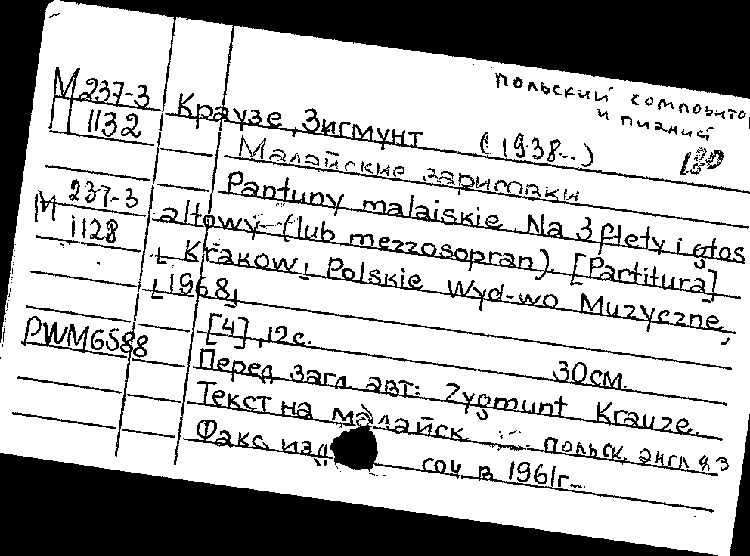 польский композитор
и пианист
М 237-3
1132
Краузе, Зигмунт (1938-.)
180
Малайские зарисовки
Pantuny malaiskie. Na 3 flety i głos
М 237-3
1128
altowy (lub mezzosopran). [Partitura]
[Krakow], Polskie Wyd-wo Muzyczne,
[1968]
PWM6588
[4], 12с.
30см.
Перед загл. авт: Zygmunt Krauze.
Текст на малайск польск. англ. яз
Факс изд соч в 1961г.